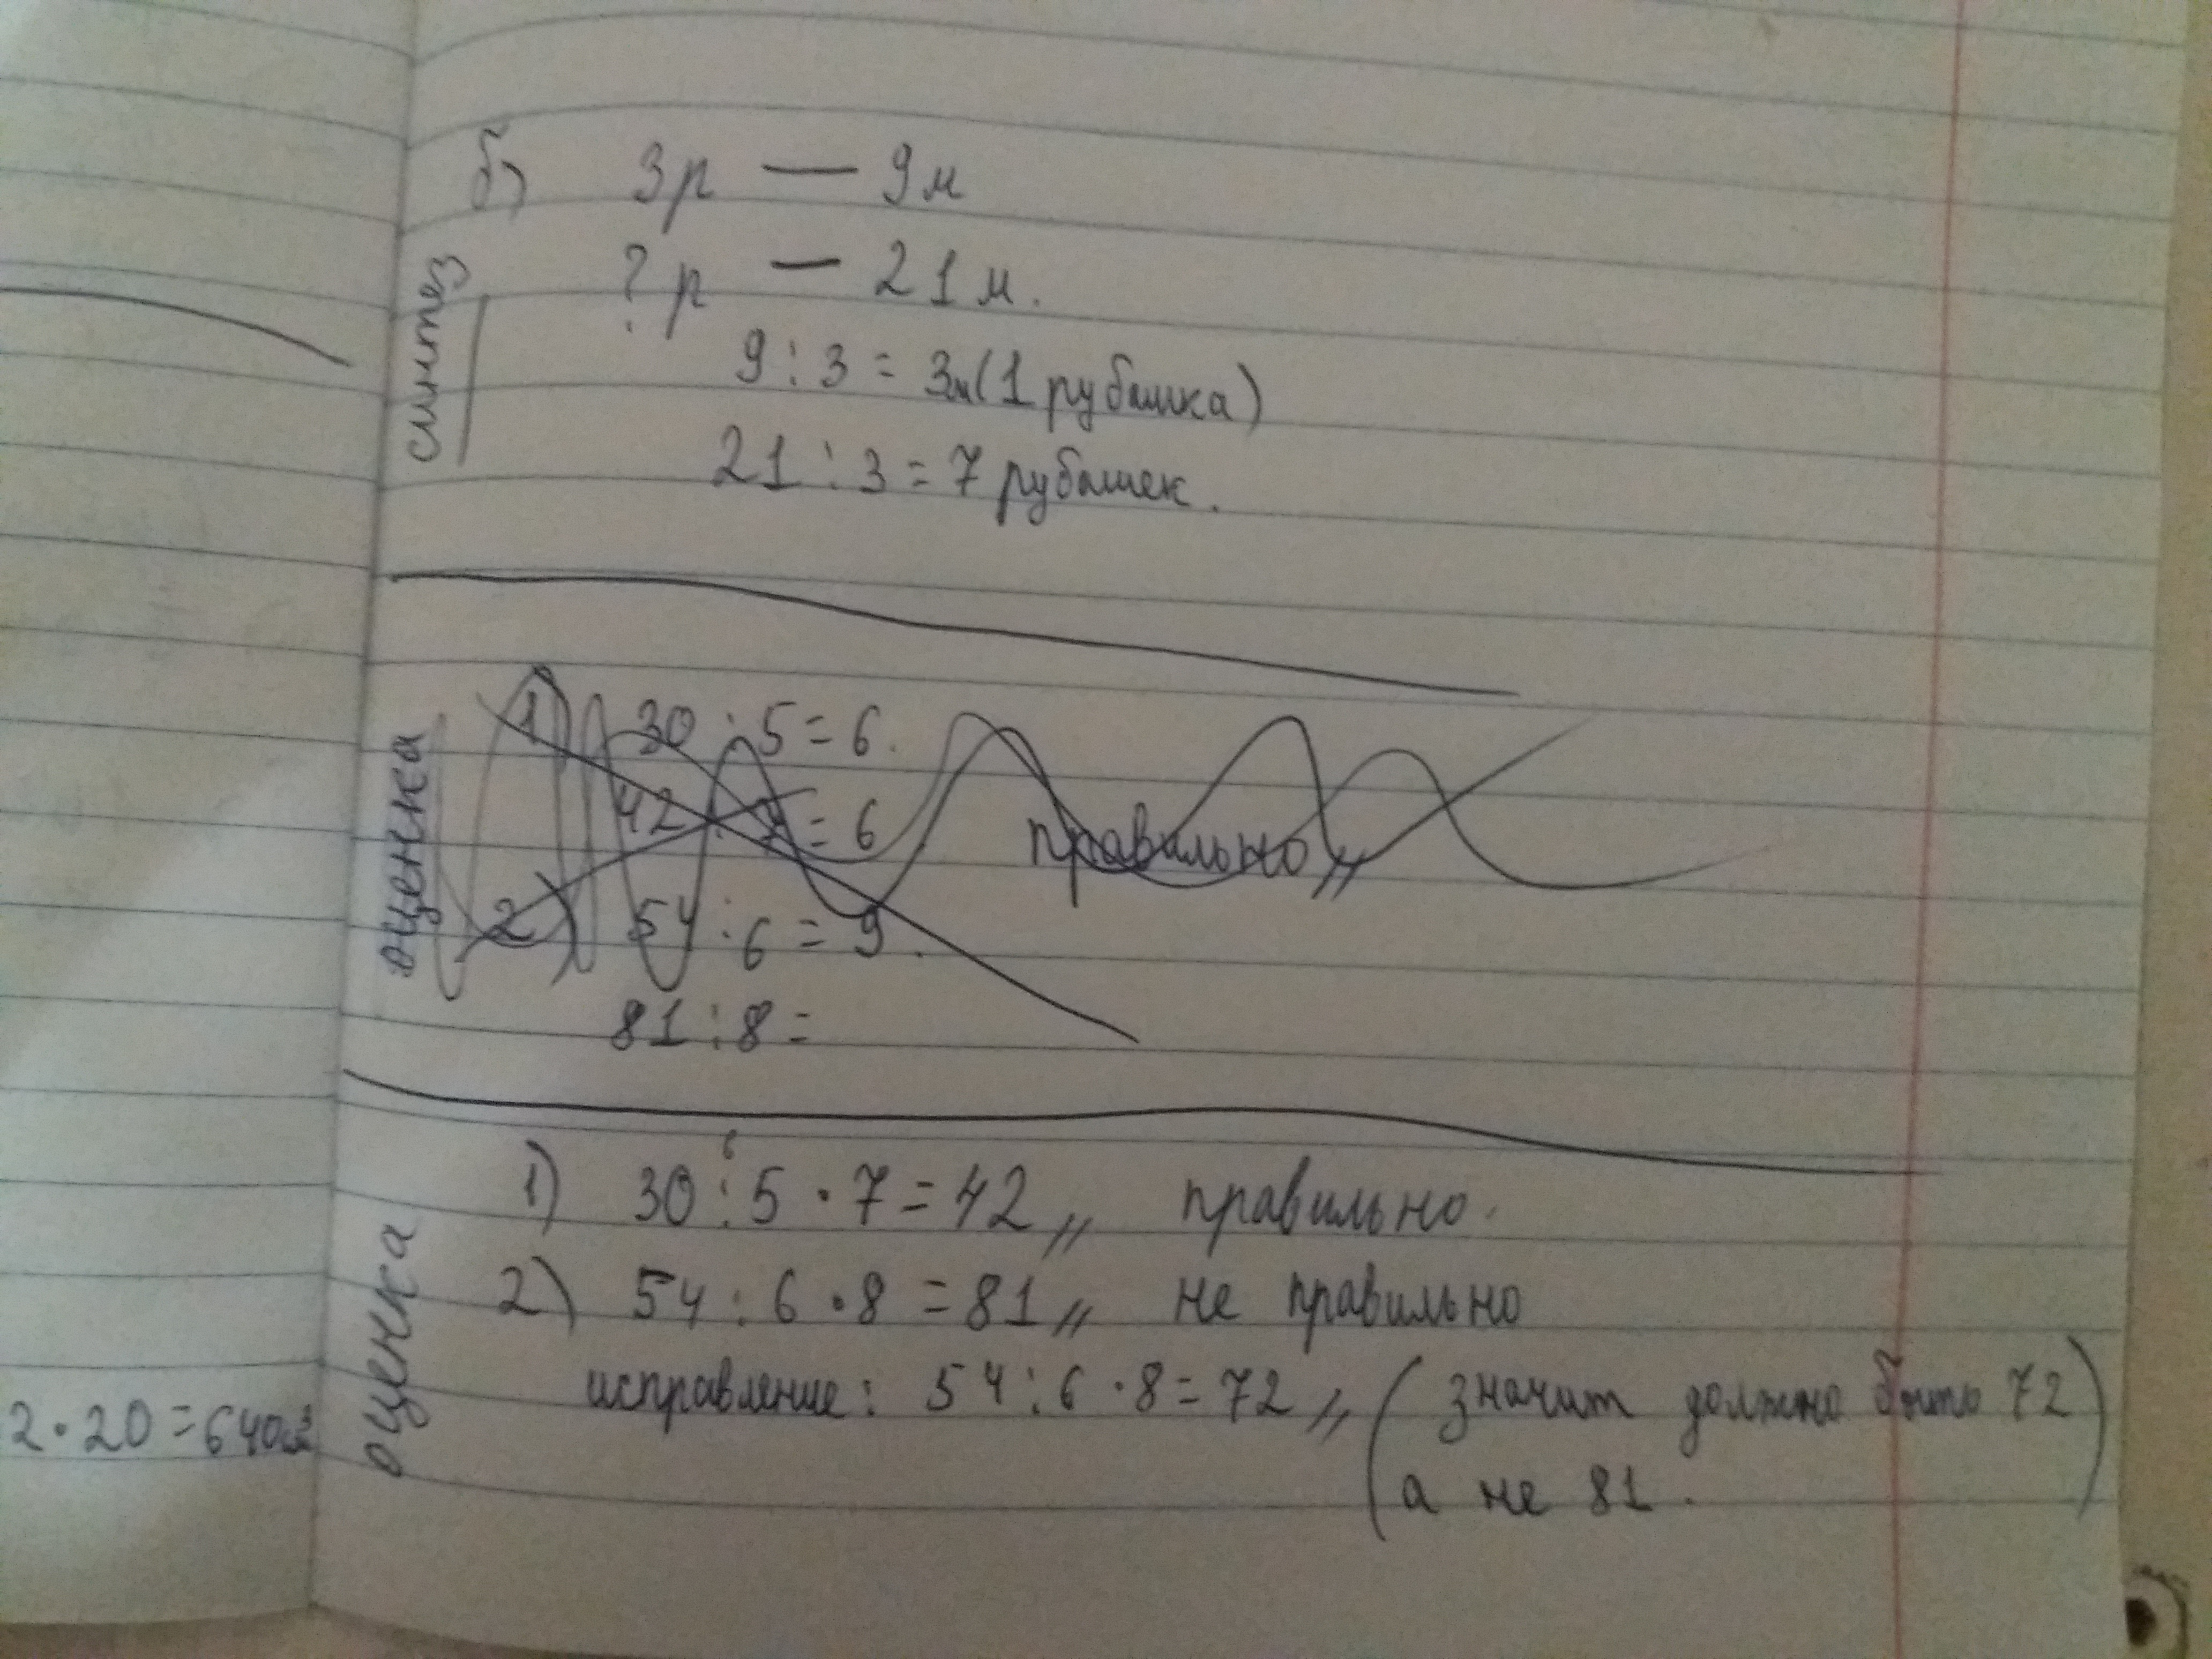 б) 3р — 9м
?р — 21м.
синтез
9 : 3 = 3м (1 рубашка)
21 : 3 = 7 рубашек.
оценка
1) 30 : 5 = 6.
42 : 7 = 6 правильно,,
2) 54 : 6 = 9.
81 : 8 =
оценка
6
1) 30 : 5 · 7 = 42,, правильно.
2) 54 : 6 · 8 = 81,, не правильно
исправление: 54 : 6 · 8 = 72,, (значит должно быть 72
а не 81.)
2 · 20 = 640